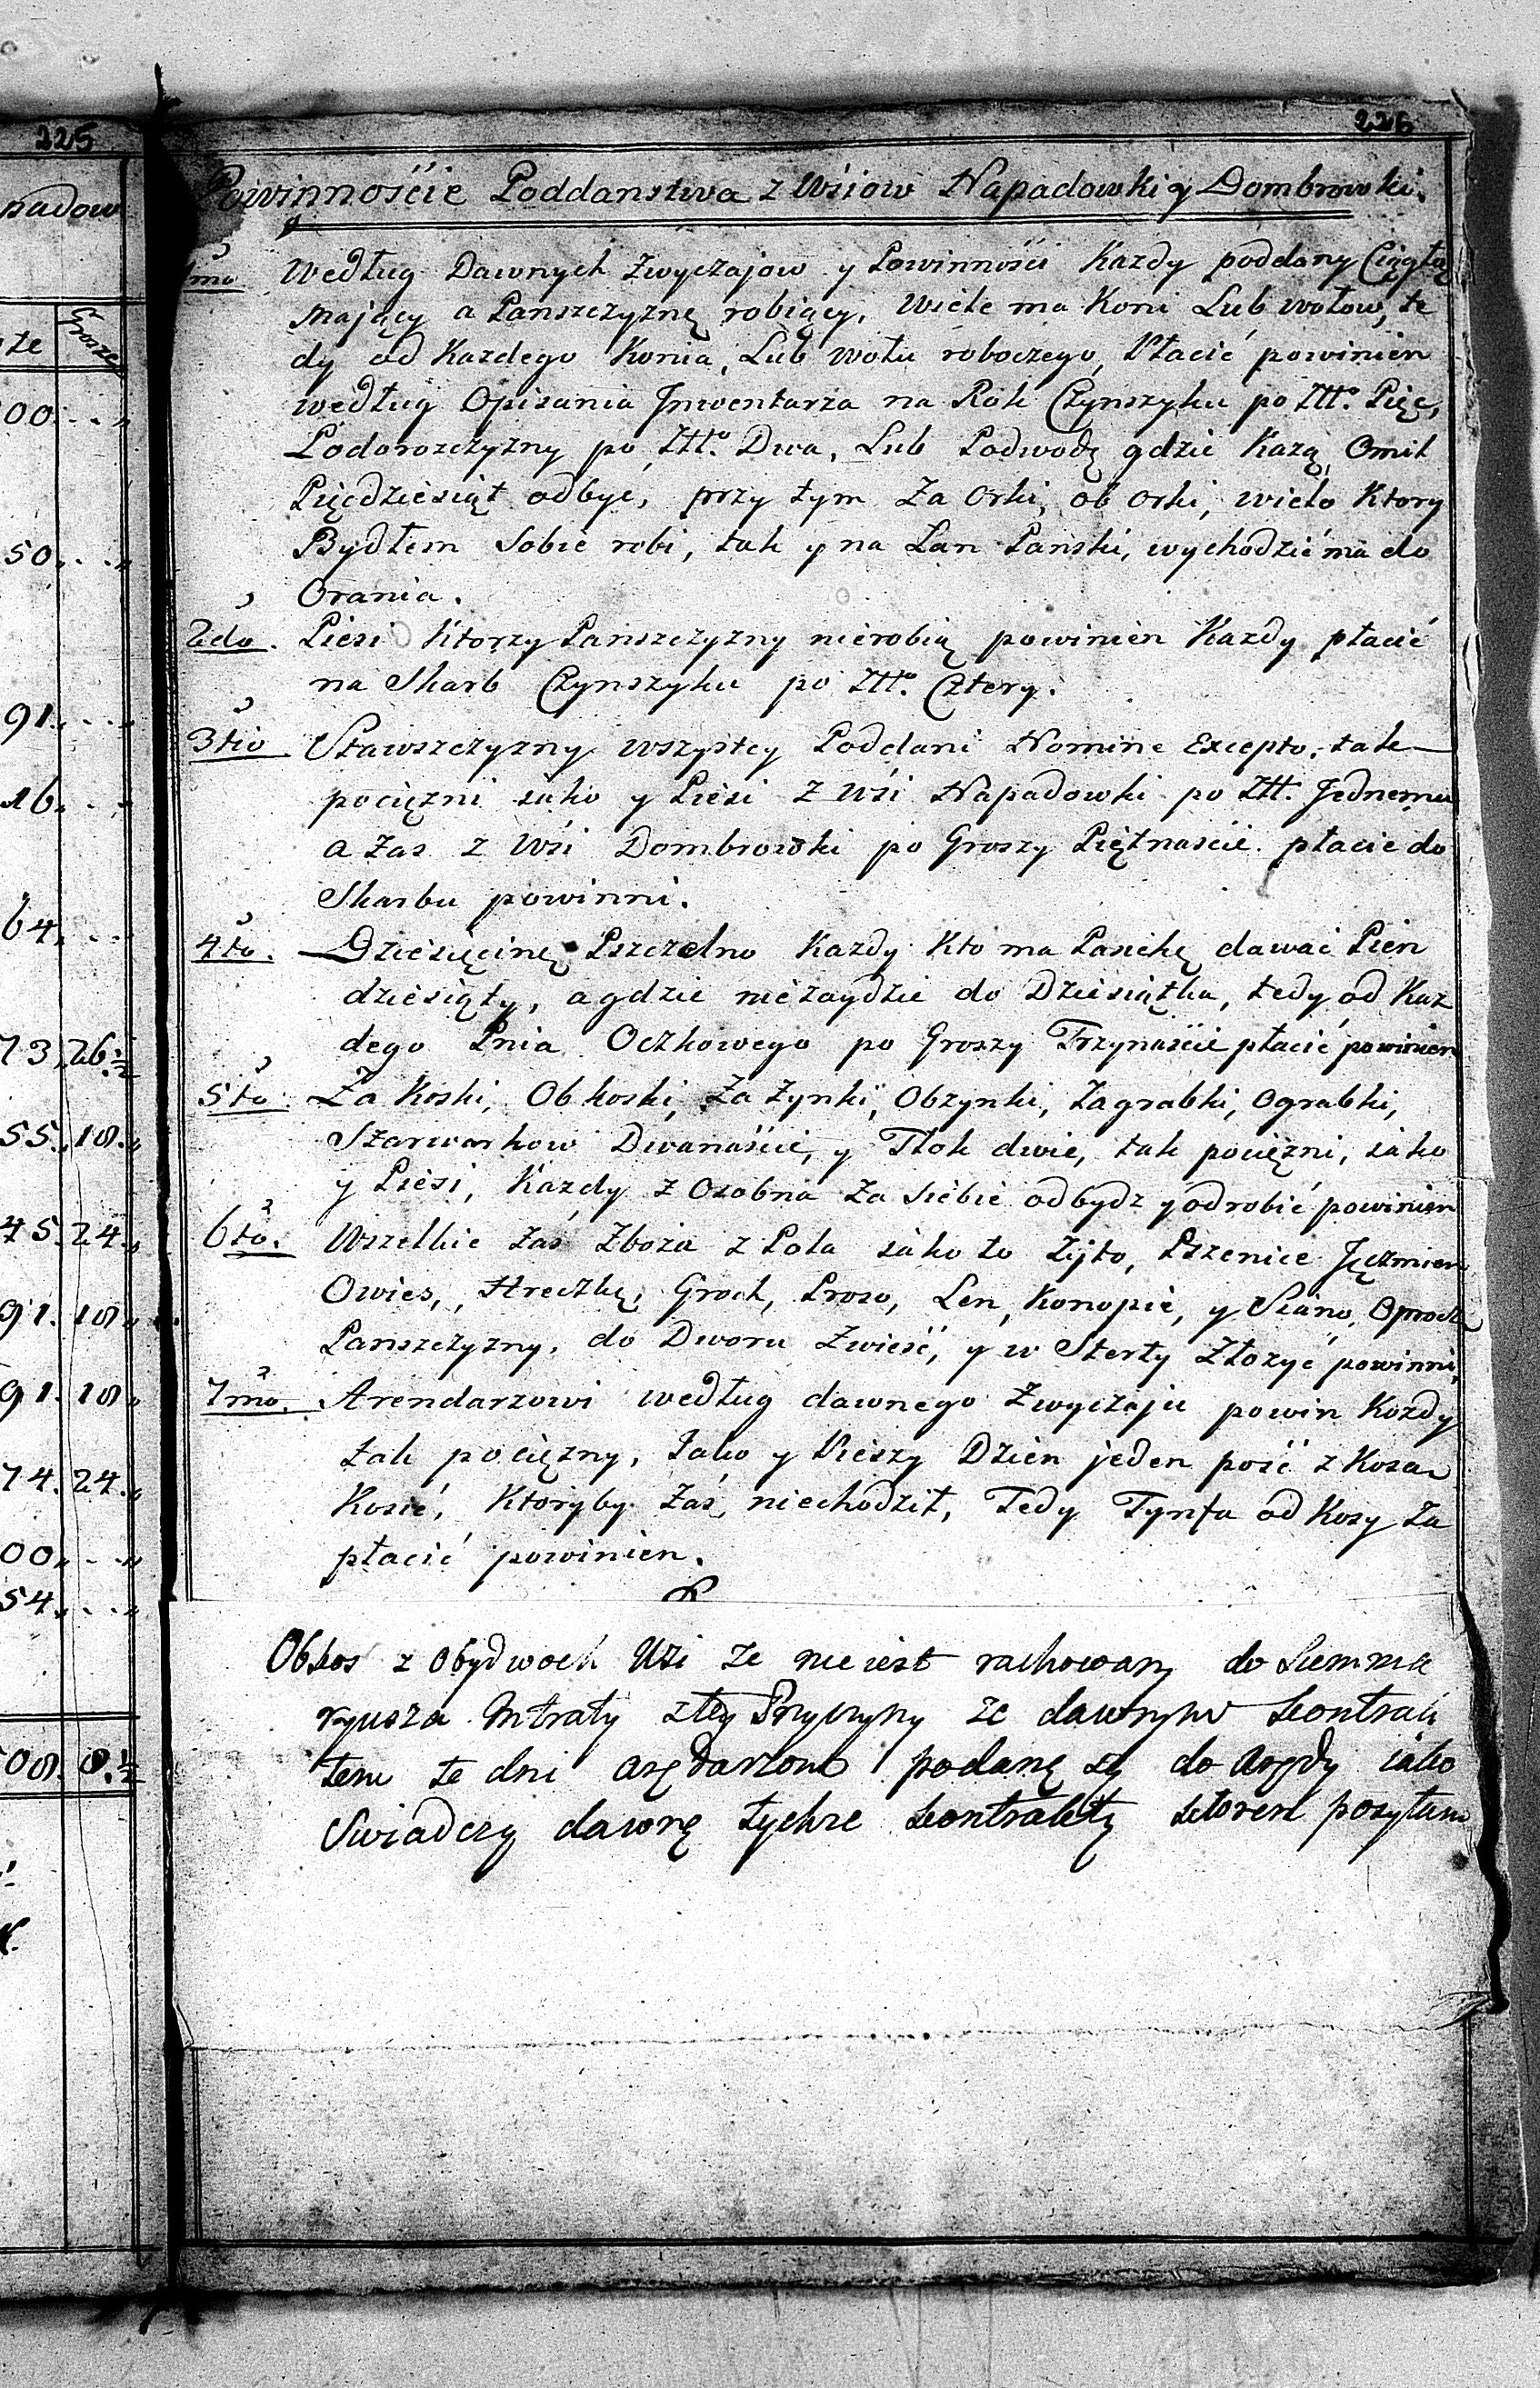 225
226
padow
Powinnoście Poddanstwa z Wsiow Napadowki y Dombrowki.
1mo Według Dawnych zwyczajow y Powinności Kazdy poddany Ciągłą
mający a Panszczyznę robiący, wiele ma Koni Lub wołow, te
dy od Kazdego Konia, Lub wołu roboczego, Płacić powinien
według Opisania Jnwentarza na Rok Czynszyku po Złł. Pięc,
Podorozczyzny po Złł. Dwa, Lub Podwodę gdzie Kazą, Omil
Pięcdziesiąt odbyć, przy tym Za Orki, ob Orki, wielo Ktory
Bydłem Sobie robi, tak y na Łan Panski, wychodzić ma do
Orania.
2do. Piesi Ktorzy Panszczyzny nierobią powinien Kazdy płacić
na Skarb Czynszyku po Złł. Cztery.
3tio Stawszczyzny wszystcy Poddani Nomine Excepto, tak
pocięzni iako y Piesi z Wsi Napadowki po Złł. Jednemu
a Zas z Wsi Dombrowki po Groszy Piętnaście. płacic do
Skarbu powinni.
4to. Dziesięcinę Pszczelno Kazdy Kto ma Pasiekę dawać Pien
dziesiąty, a gdzie niezaydzie do Dziesiątka, tedy od Kaz
dego Pnia Oczkowego po Groszy Trzynaście płacić powinien
5to. Za Koski, Ob koski, Za zynki, Obzynki, Zagrabki, Ograbki,
Szarwarkow Dwanaście, y Tłok dwie, tak pocięzni, iako
y Piesi, Kazdy z Osobna Za Siebie odbydz y odrobić powinien
6to. Wszelkie Zaś Zboża z Pola iako to Zyto, Pszenice Jęczmien,
Owies, Hreczkę, Groch, Proso, Len, Konopie, y Siano, Oprocz
Panszczyzny, do Dworu Zwieść, y w Sterty Złozyć powinni,
7mo. Arendarzowi według dawnego Zwyczaju powin Kozdy
tak pocięzny, Jako y Pieszy Dzien jeden pość z Kosa
Kosić, Ktoryby Zaś niechodził, Tedy Tynfa od Kosy Za
płacić powinien.
Obkos z obydwoch Wsi ze nie iest rachowany do Summa
ryusza Intraty z tey Przyczyny ze dawnym kontrak
tem te dni arędarzom podanę są do Arędy iako
Swiadczy dawnę tychze kontrakty
te
Grosze
00.
50.
91.
16.
64.
73. 26.½
55. 18.
45. 24.
91. 18.
91. 18.
74. 24.
00.
54.
08. 8.½